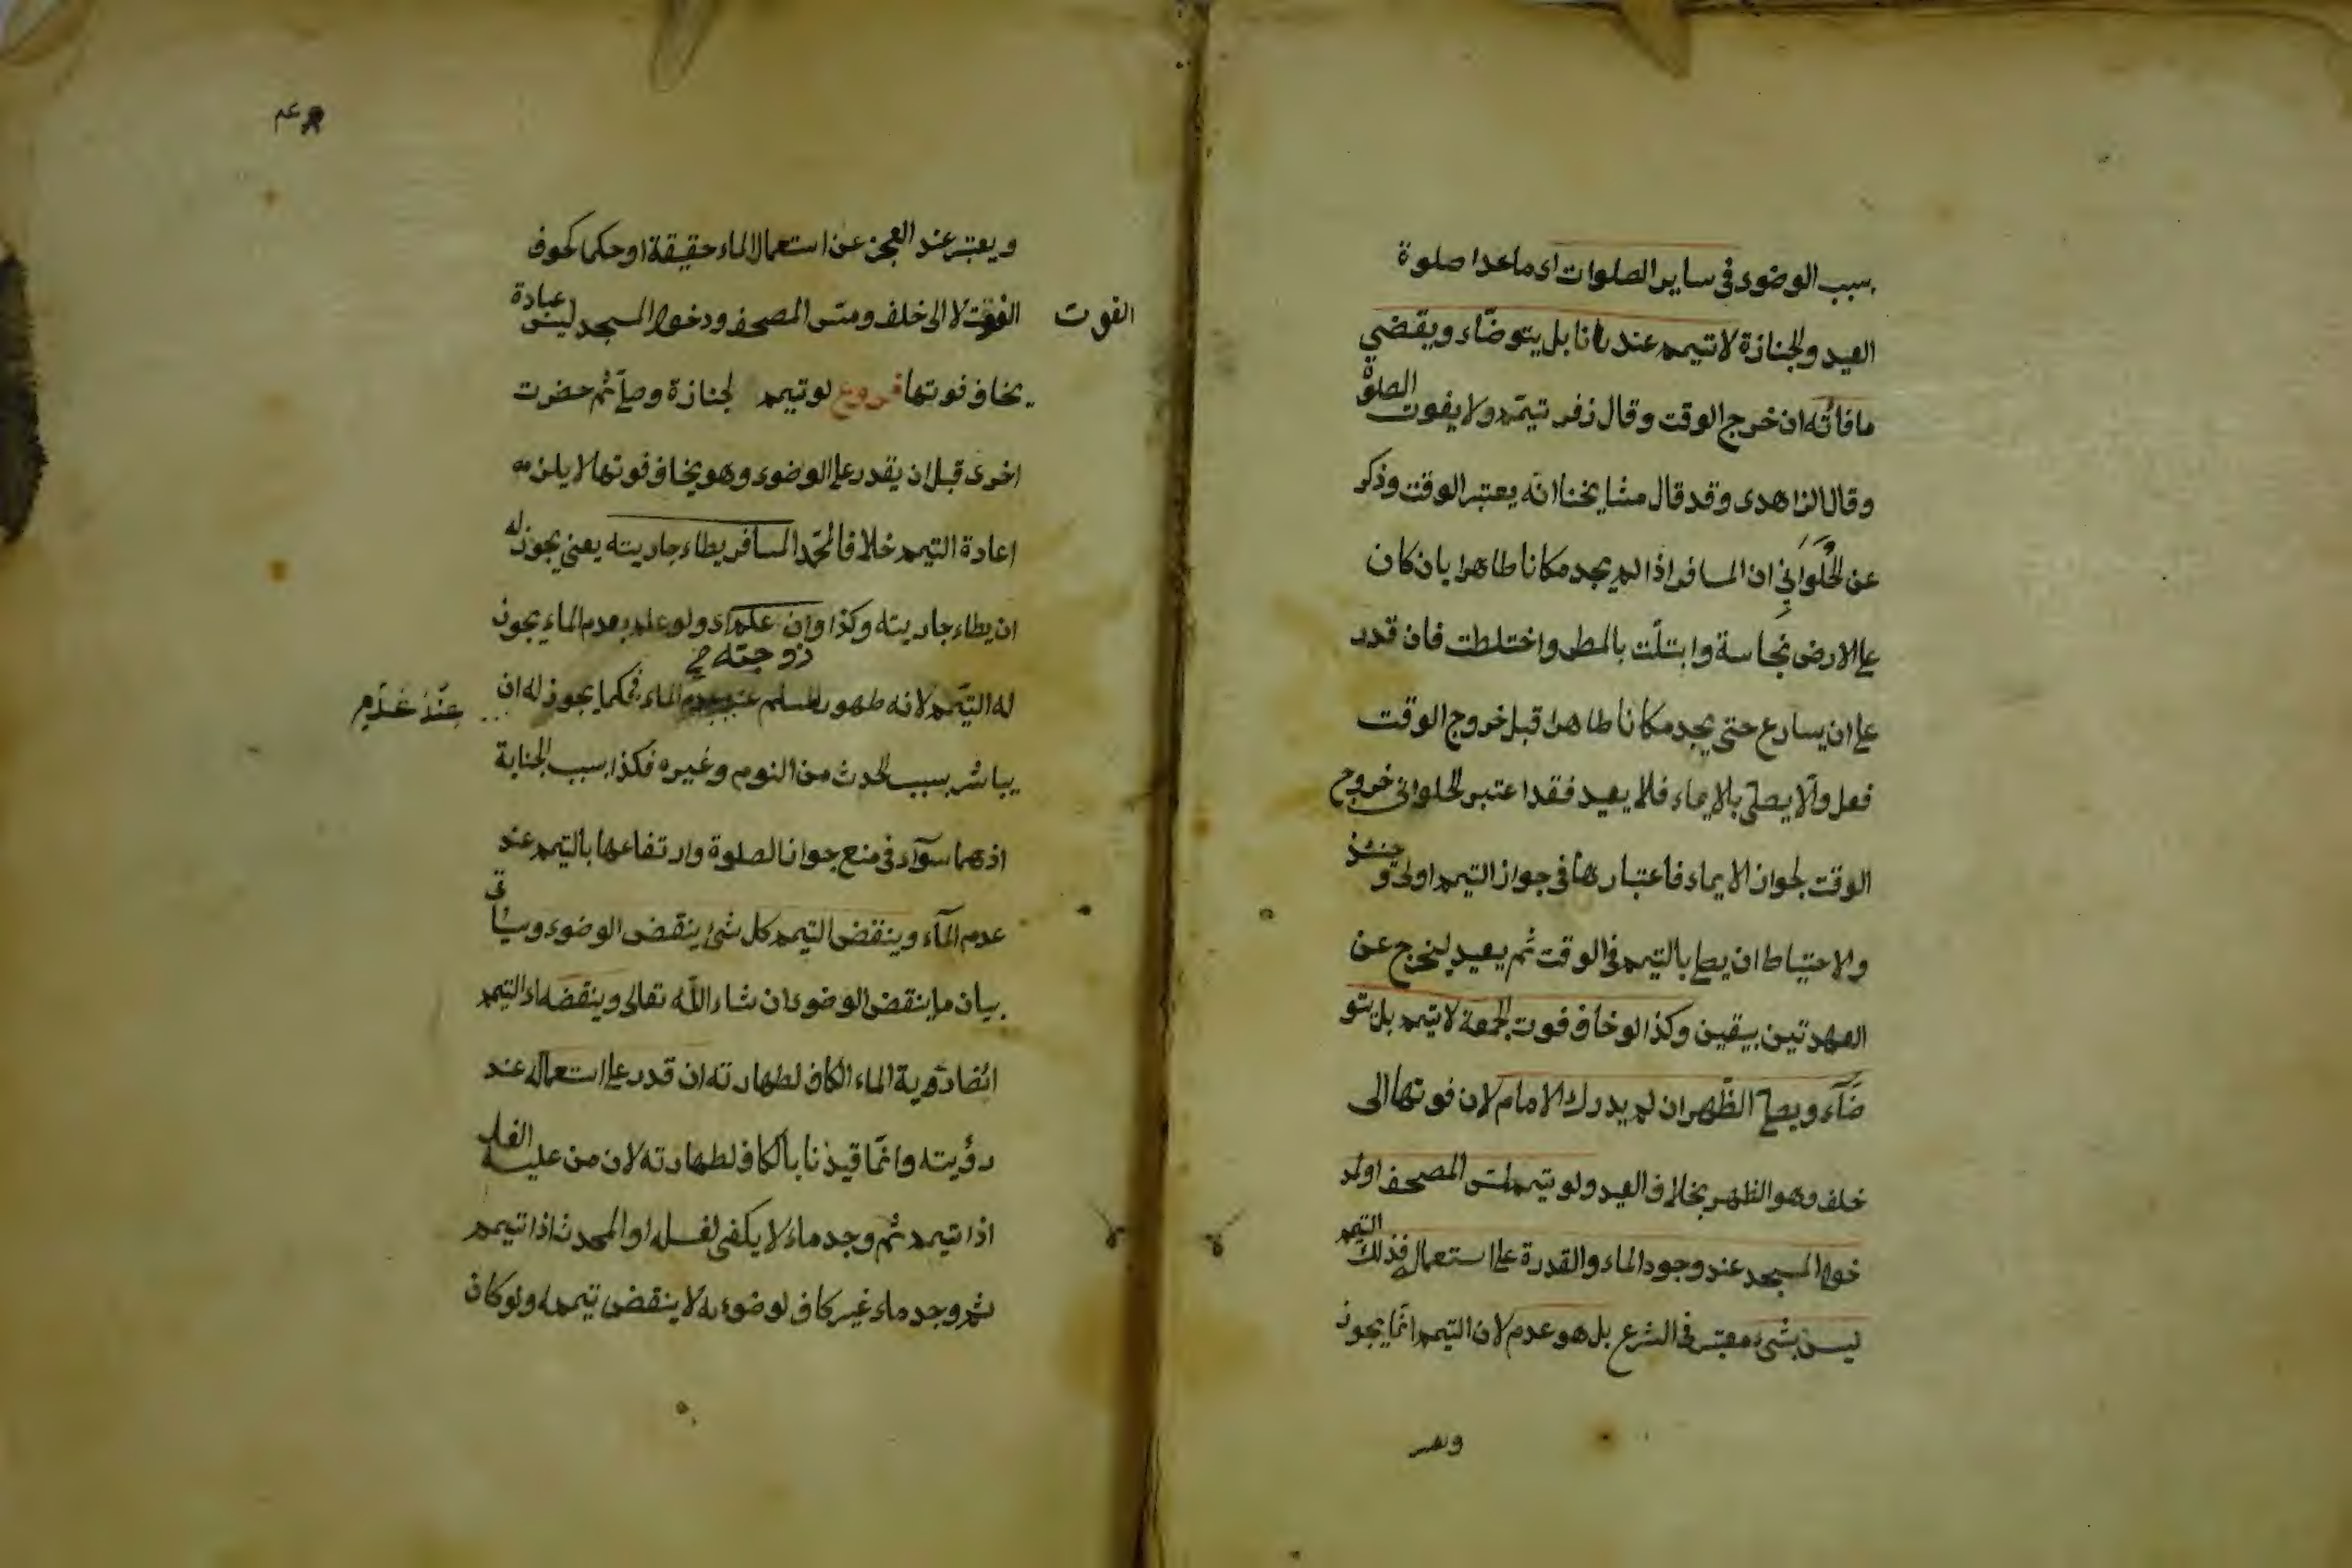 بسبب الوضوء فى ساير الصلوات اى ماعدا صلوة
العيد والجنازة لا تيمم عندنا بل يتوضاء ويقضي
ما فاته ان خرج الوقت وقال زفر تيمم ولا يفوت الصلوة
وقال الزاهدى وقد قال مشايخنا انه يعتبر الوقت وذكر
عن الحلواني ان المسافر اذا لم يجد مكانا طاهرا بان كان
على الارض نجاسة وابتلت بالمطر واختلطت فان قدر
على ان يسارع حتى يجد مكانا طاهرا قبل خروج الوقت
فعل والا يصلى بالايماء فلا يعيد فقد اعتبر الحلوانى خروج
الوقت لجواز الايماء فاعتبارها فى جواز التيمم اولى وحينئذ
والاحتياط ان يصلى بالتيمم فى الوقت ثم يعيد ليخرج عن
العهدتين بيقين وكذا لو خاف فوت الجمعة لا تيمم بل يتو
ضآء ويصلى الظهر ان لم يدرك الامام لان فوتها الى
خلف وهو الظهر بخلاف العيد ولو تيمم لمس المصحف او لد
خول المسجد عند وجود الماء والقدرة على استعماله فذلك التيمم
ليس بشىء معتبر فى الشرع بل هو عدم لان التيمم انما يجوز
ويعتبر
ويعتبر عند العجز عن استعمال الماء حقيقة او حكما كخوف
الفوت لا الى خلف ومس المصحف ودخول المسجد ليس عبادة
الفوت
يخاف فوتها فروع لو تيمم لجنازة وصلى ثم حضرت
اخرى قبل ان يقدر على الوضوء وهو يخاف فوتها لا يلزمه
اعادة التيمم خلافا لمحمد المسافر يطاء جاريته يعنى يجوز له
ان يطاء جاريته وكذا زوجته وان علم اى ولو علم بعدم الماء يجوز
له التيمم لانه طهور المسلم عند عدم الماء فكما يجوز له ان
عند عدم
يباشر بسبب الحدث من النوم وغيره فكذا بسبب الجنابة
اذ هما سوآء فى منع جواز الصلوة وارتفاعها بالتيمم عند
عدم الماء وينقض التيمم كل شئ ينقض الوضوء وسيأتى
بيان ما ينقض الوضوء ان شاء الله تعالى وينقضه اى التيمم
ايضا رؤية الماء الكاف لطهارته ان قدر على استعماله عند
رؤيته وانما قيدنا بالكاف لطهارته لان من عليه الغسل
اذا تيمم ثم وجد ماء لا يكفى لغسله او المحدث اذا تيمم
ثم وجد ماء غير كاف لوضوءه لا ينقض تيممه ولو كان